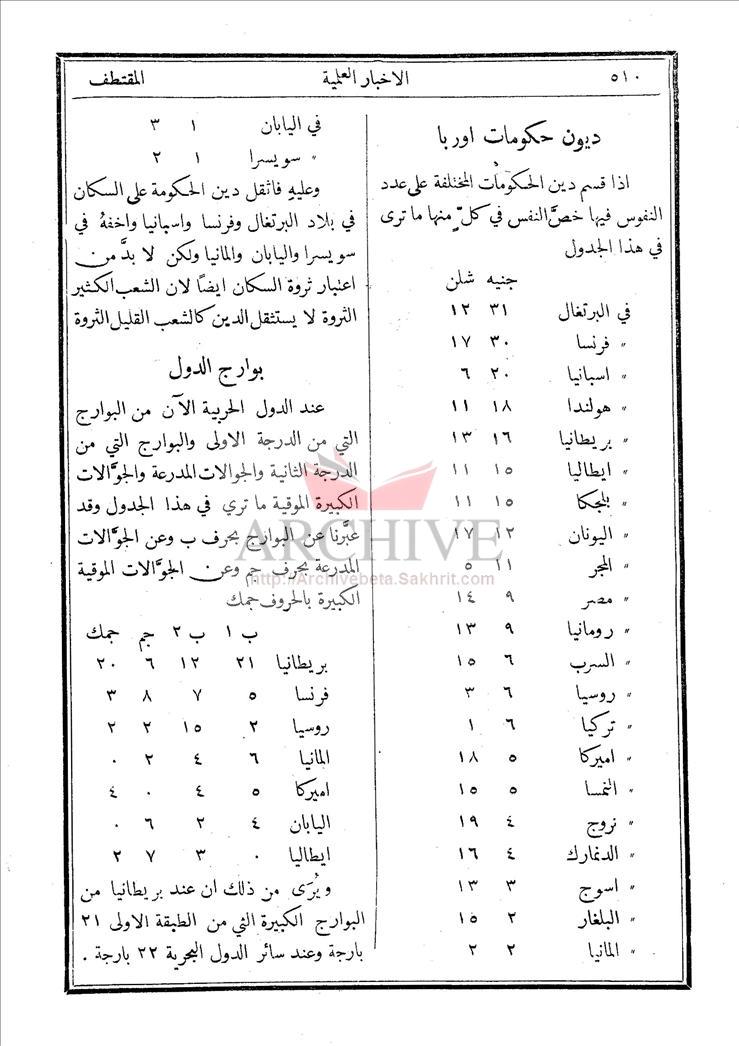 ٥١٠ الاخبار العلمية المقتطف
ديون حكومات اوربا
اذا قسم دين الحكومات المختلفة على عدد
النفوس فيها خصَّ النفس في كلٍّ منها ما ترى
في هذا الجدول
جنيه شلن
في البرتغال ٣١ ١٢
〃 فرنسا ٣٠ ١٧
〃 اسبانيا ٢٠ ٦
〃 هولندا ١٨ ١١
〃 بريطانيا ١٦ ١٣
〃 ايطاليا ١٥ ١١
〃 بلجكا ١٥ ١١
〃 اليونان ١٢ ١٧
〃 المجر ١١ ٥
〃 مصر ٩ ١٤
〃 رومانيا ٩ ١٣
〃 السرب ٦ ١٥
〃 روسيا ٦ ٣
〃 تركيا ٦ ١
〃 اميركا ٥ ١٨
〃 النمسا ٥ ١٥
〃 نروج ٤ ١٩
〃 الدنمارك ٤ ١٦
〃 اسوج ٣ ١٣
〃 البلغار ٢ ١٥
〃 المانيا ٢ ٢
في اليابان ١ ٣
〃 سويسرا ١ ٢
وعليهِ فاثقل دين الحكومة على السكان
في بلاد البرتغال وفرنسا واسبانيا واخفهُ في
سويسرا واليابان والمانيا ولكن لا بدَّ من
اعتبار ثروة السكان ايضًا لان الشعب الكثير
الثروة لا يستثقل الدين كالشعب القليل الثروة
بوارج الدول
عند الدول الحربية الآن من البوارج
التي من الدرجة الاولى والبوارج التي من
الدرجة الثانية والجوالات المدرعة والجوَّالات
الكبيرة الموقية ما تري في هذا الجدول وقد
عبَّرنا عن البوارج بحرف ب وعن الجوَّالات
المدرعة بحرف جم وعن الجوَّالات الموقية
الكبيرة بالحروف جمك
ب ١ ب ٢ جم جمك
بريطانيا ٢١ ١٢ ٦ ٢٠
فرنسا ٥ ٧ ٨ ٣
روسيا ٢ ١٥ ٢ ٢
المانيا ٦ ٤ ٢ ٠
اميركا ٥ ٤ ٠ ٤
اليابان ٤ ٢ ٦ ٠
ايطاليا ٠ ٣ ٧ ٢
ويُرَى من ذلك ان عند بريطانيا من
البوارج الكبيرة التي من الطبقة الاولى ٢١
بارجة وعند سائر الدول البحرية ٢٢ بارجة .
ARCHIVE
http://Archivebeta.Sakhrit.com